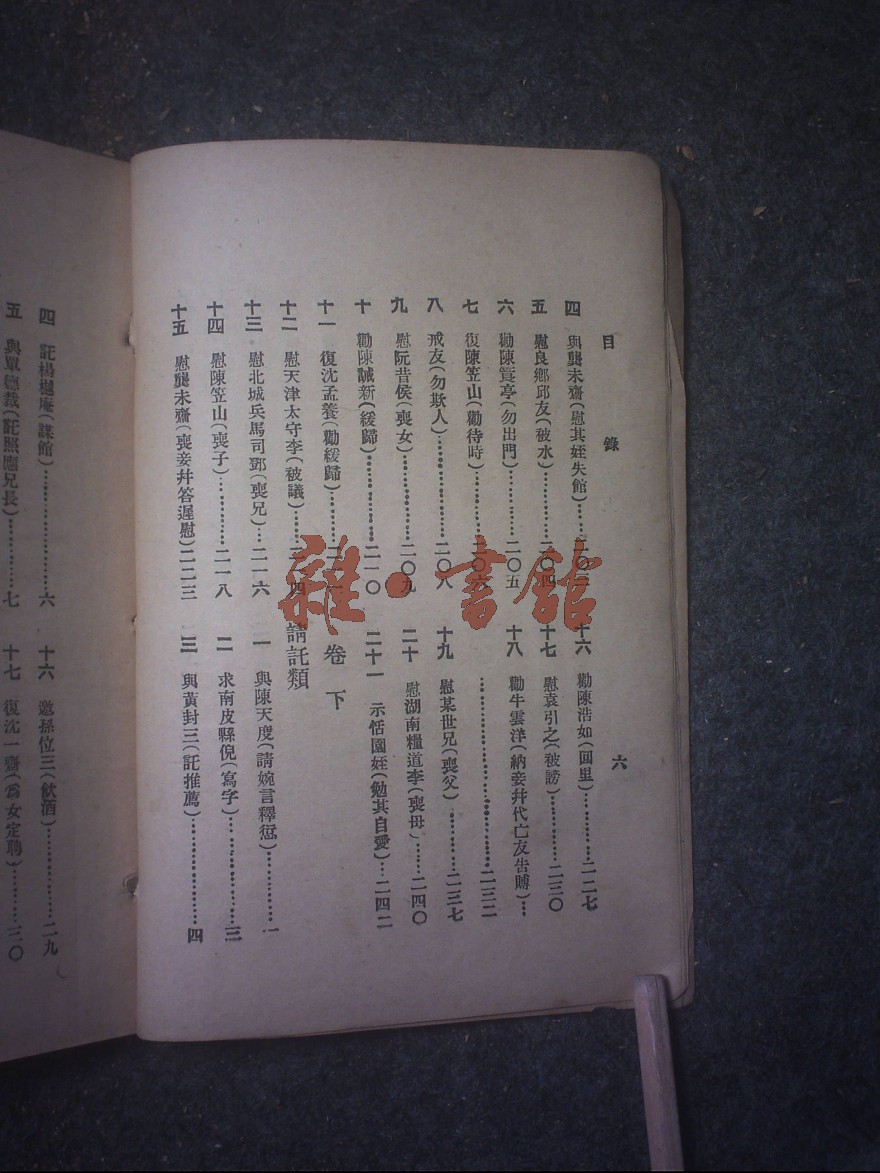 目錄 六
四 與龔未齋(慰其姪失館)……二〇三
五 慰良鄉邱友(被水)……二〇四
六 勸陳篔亭(勿出門)……二〇五
七 復陳笠山(勸待時)……二〇六
八 戒友(勿欺人)……二〇八
九 慰阮昔侯(喪女)……二〇九
十 勸陳誠新(緩歸)……二一〇
十一 復沈孟養(勸緩歸)……二一二
十二 慰天津太守李(被議)……二一四
十三 慰北城兵馬司鄧(喪兄)…二一六
十四 慰陳笠山(喪子)……二一八
十五 慰龔未齋(喪妾幷答遲慰)二二三
十六 勸陳浩如(回里)……二二七
十七 慰袁引之(被謗)……二三〇
十八 勸牛雲洋(納妾幷代亡友告賻)…
……二三二
十九 慰某世兄(喪父)……二三七
二十 慰湖南糧道李(喪母)……二四〇
二十一 示恬園姪(勉其自愛)…二四二
卷下
請託類
一 與陳天度(請婉言釋愆)……一
二 求南皮縣倪(寫字)……三
三 與黃封三(託推薦)……四
四 託楊樾庵(謀館)……六
五 與單總裁(託照應兄長)……七
十六 邀孫位三(飲酒)……二九
十七 復沈一齋(爲女定聘)……三〇
雜·書館